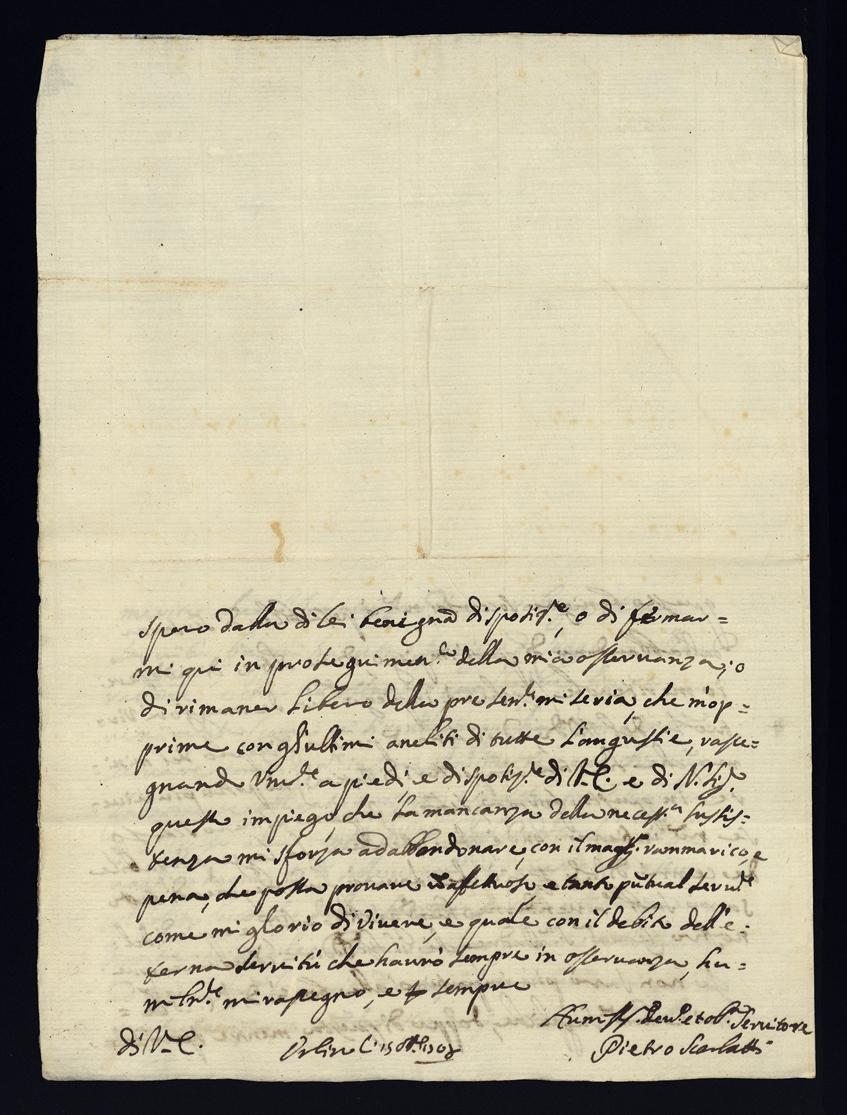 spero dalla di lei benigna disposiz.e, o di fermar=
mi qui in proseguimen.to della mia osservanza, o
di rimaner libero della presen.te miseria, che m'op=
prime con gl'ultimi aneliti di tutte l'angustie, rasse=
gnando Um.te a piedi e disposiz.e di V. E. e di N. Sig.re
questo impiego che la mancanza della necess.a sussis=
tenza mi sforza ad abbandonare, con il magg.r rammarico, e
pena, che possa provare affettuoso, e tanto pũtual serv.re
come mi glorio di vivere, e quale con il debito dell'e=
terna servitù che haurò sempre in osservanza, hu=
mi rassegno, e sempre
di V. E. Urbino li 15 Ott.
Hum.ss. Dev. et ob. Servitore
Pietro Scarlatti